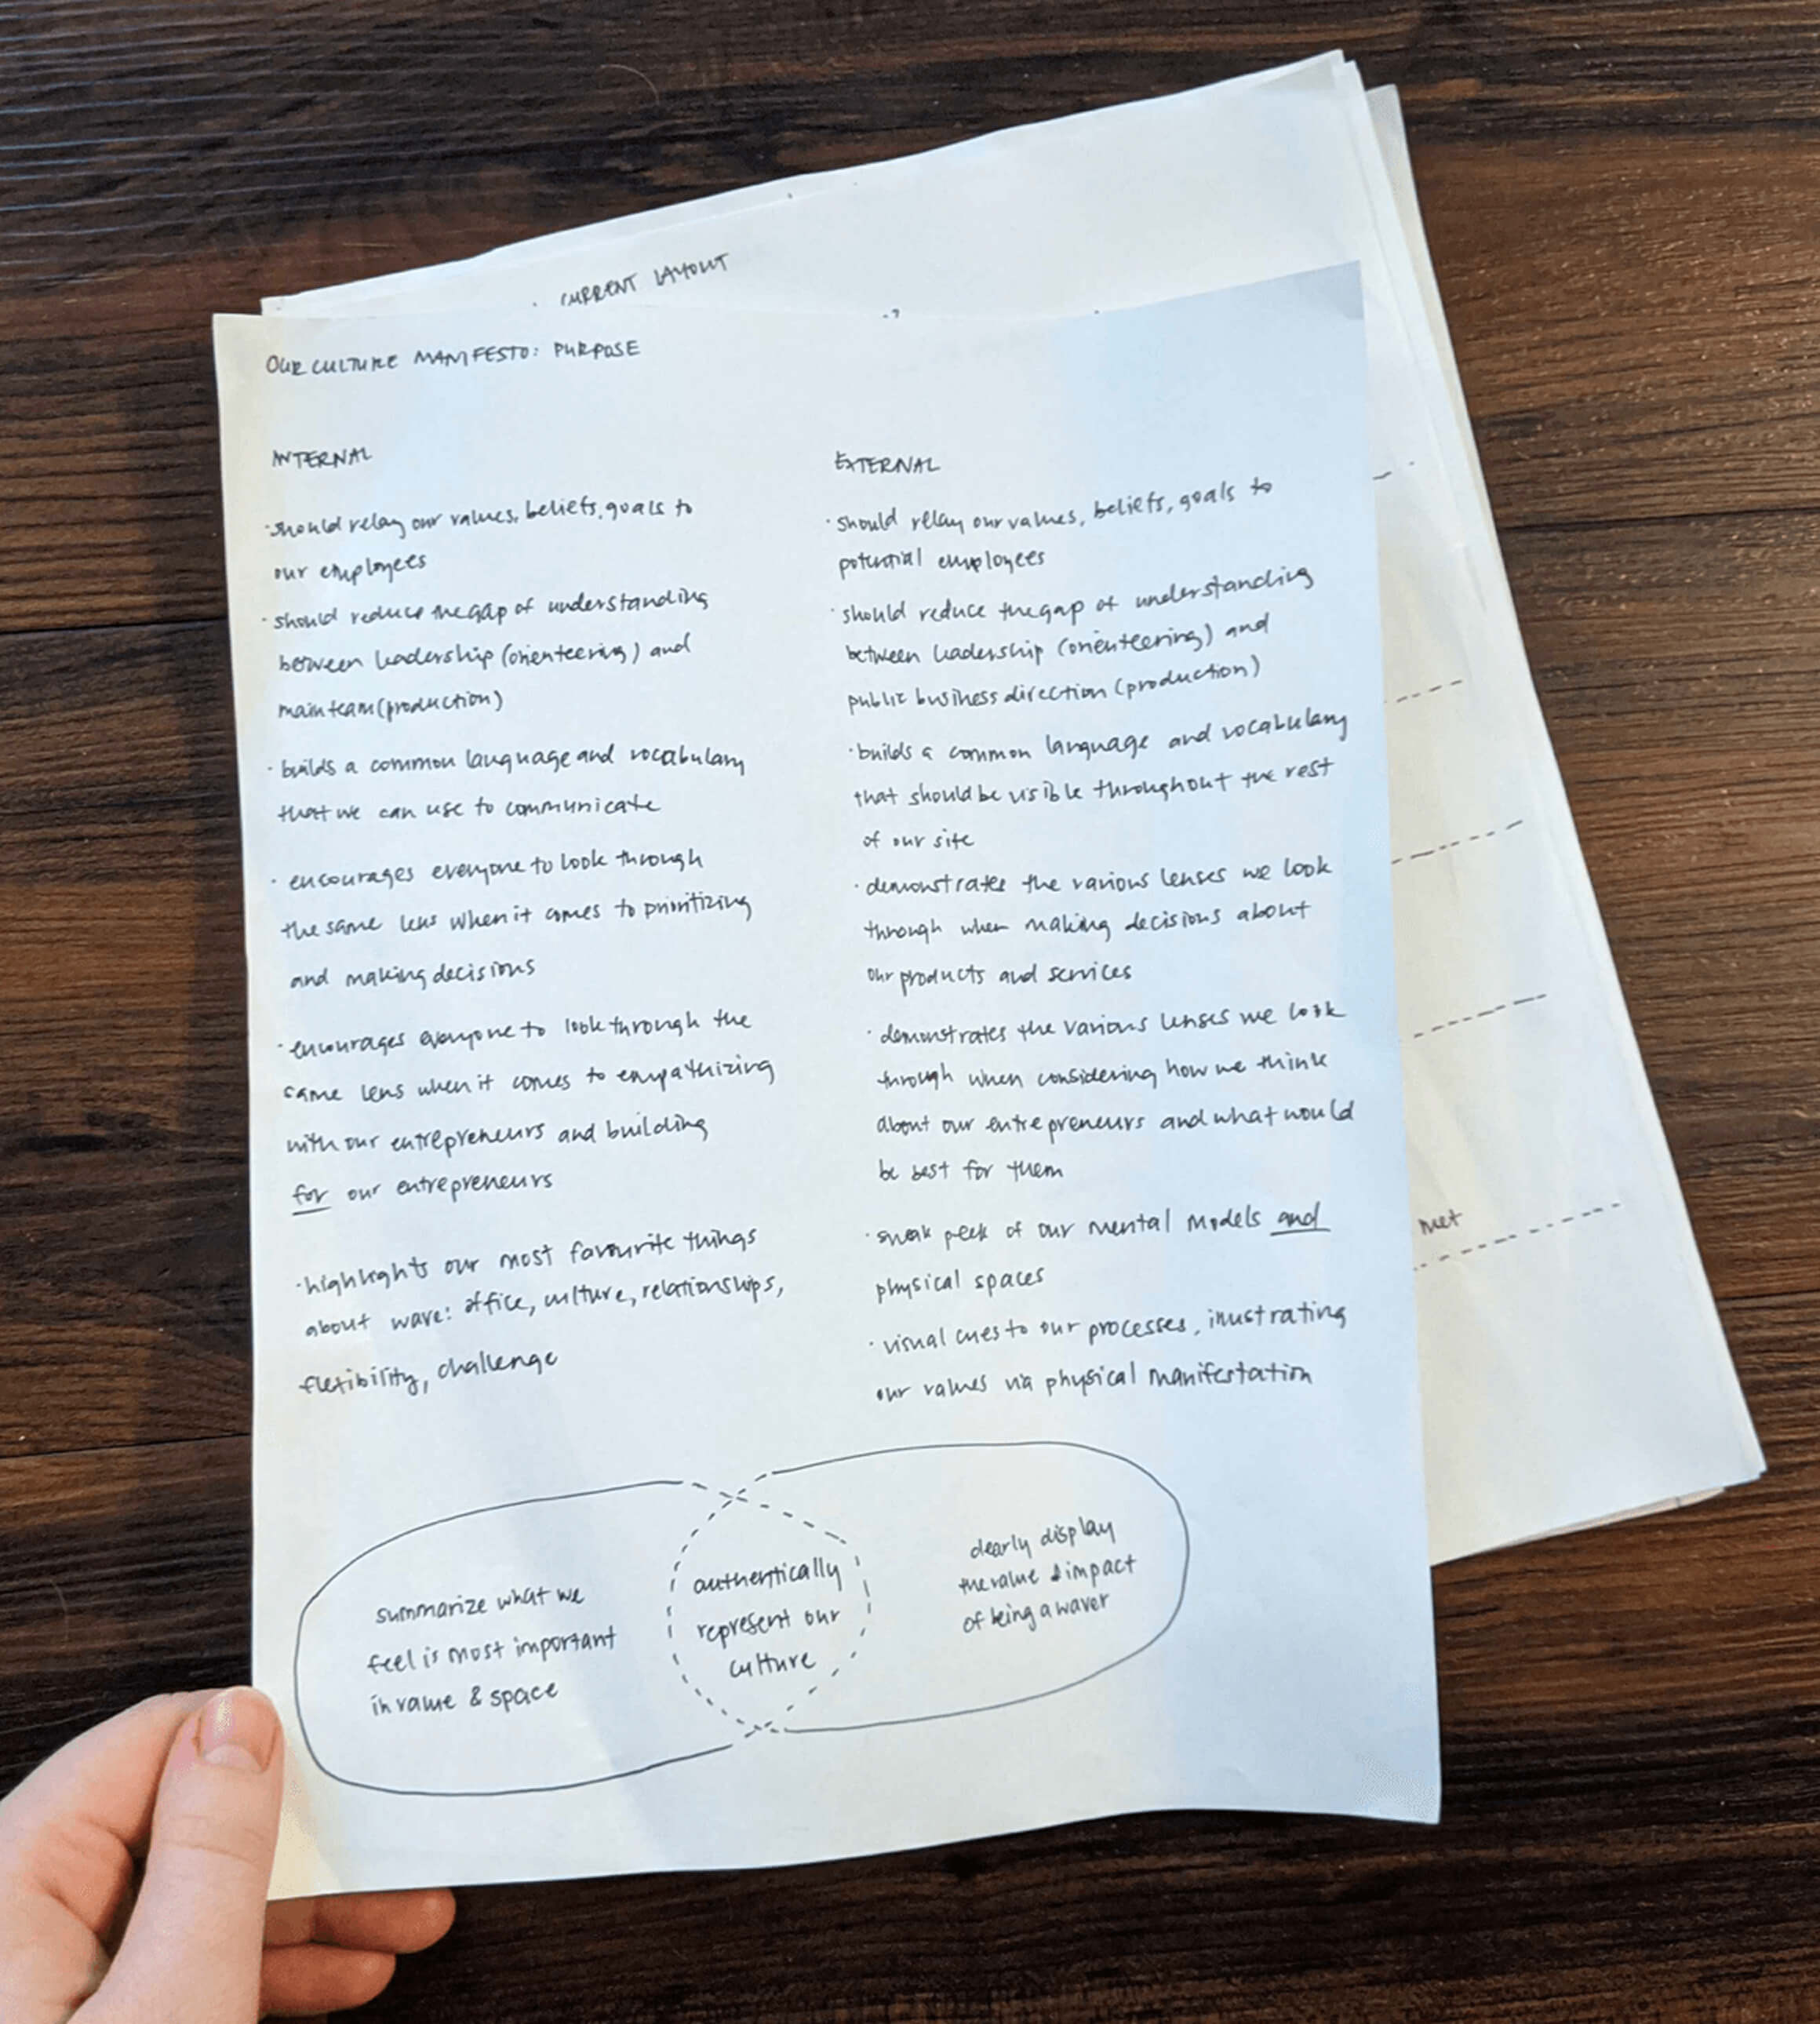 CURRENT LAYOUT
OUR CULTURE MANIFESTO: PURPOSE
INTERNAL
· should relay our values, beliefs, goals to
our employees
· should reduce the gap of understanding
between leadership (orienteering) and
main team (production)
· builds a common language and vocabulary
that we can use to communicate
· encourages everyone to look through
the same lens when it comes to prioritizing
and making decisions
· encourages everyone to look through the
same lens when it comes to empathizing
with our entrepreneurs and building
for our entrepreneurs
· highlights our most favourite things
about wave: office, culture, relationships,
flexibility, challenge
EXTERNAL
· should relay our values, beliefs, goals to
potential employees
· should reduce the gap of understanding
between leadership (orienteering) and
public business direction (production)
· builds a common language and vocabulary
that should be visible throughout the rest
of our site
· demonstrates the various lenses we look
through when making decisions about
our products and services
· demonstrates the various lenses we look
through when considering how we think
about our entrepreneurs and what would
be best for them
· sneak peek of our mental models and
physical spaces
· visual cues to our processes, illustrating
our values via physical manifestation
summarize what we
feel is most important
in value & space
authentically
represent our
culture
clearly display
the value & impact
of being a waver
met